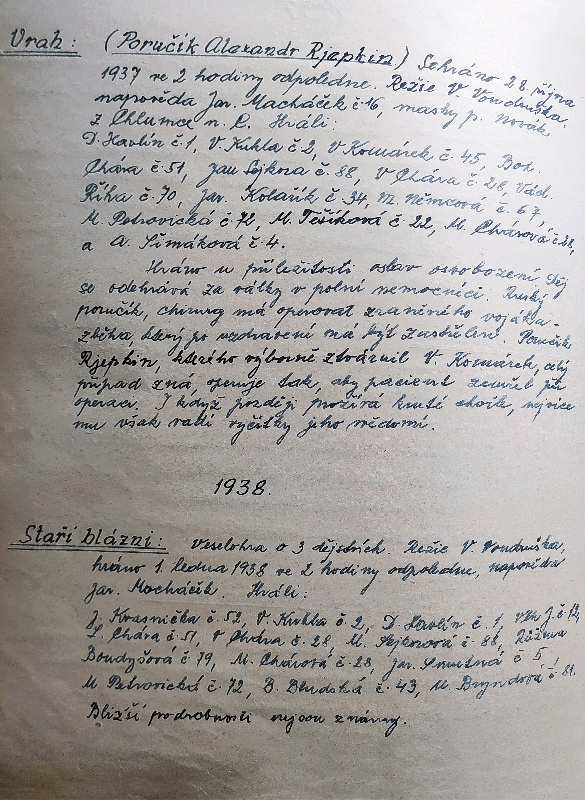 Vrah: (Poručík Alexandr Rjephin) Sehráno 28. října
1937 ve 2 hodiny odpoledne. Režie V. Vondruška,
napověda Jar. Macháček č. 16, masky p. Novák
z Chlumce n. C. Hráli:
D. Havlín č. 1, V. Kukla č. 2, V Komárek č. 45, Boh.
Chára č. 51, Jan Sejkora č. 88, V Chára č. 28, Vád.
Říha č. 70, Jar. Kolařík č. 34, M. Němcová č. 67,
M. Petrovická č. 72, M. Těšíková č. 22, M. Chárová č. 28,
a A. Šimáková č. 4.
Hráno u příležitosti oslav osvobození. Děj
se odehrává za války v polní nemocnici. Ruský
poručík, chirurg má operovat zraněného vojáka -
zběha, který po uzdravení má být zastřelen. Poručík
Rjephin, kterého výborně ztvárnil V. Komárek, celý
případ zná, operuje tak, aby pacient zemřel při
operaci. I když později prožívá kruté chvíle, nejvíce
mu však vadí výčitky jeho svědomí.
1938.
Staří blázni: Veselohra o 3 dějstvích. Režie V. Vondruška,
hráno 1. ledna 1938 ve 2 hodiny odpoledne, napovída
Jar. Macháček. Hráli:
J. Krasnička č. 52, V Kukla č. 2, D. Havlín č. 1,
Chára č. 51, V Chára č. 28, M. Sejkorová č. 88, Růžena
Boudyšová č. 79, M. Chárová č. 28, Jar. Smutná č. 5,
M Petrovická č. 72, B. Bludská č. 43, M. Bryndová č. 81.
Bližší podrobnosti nejsou známy.